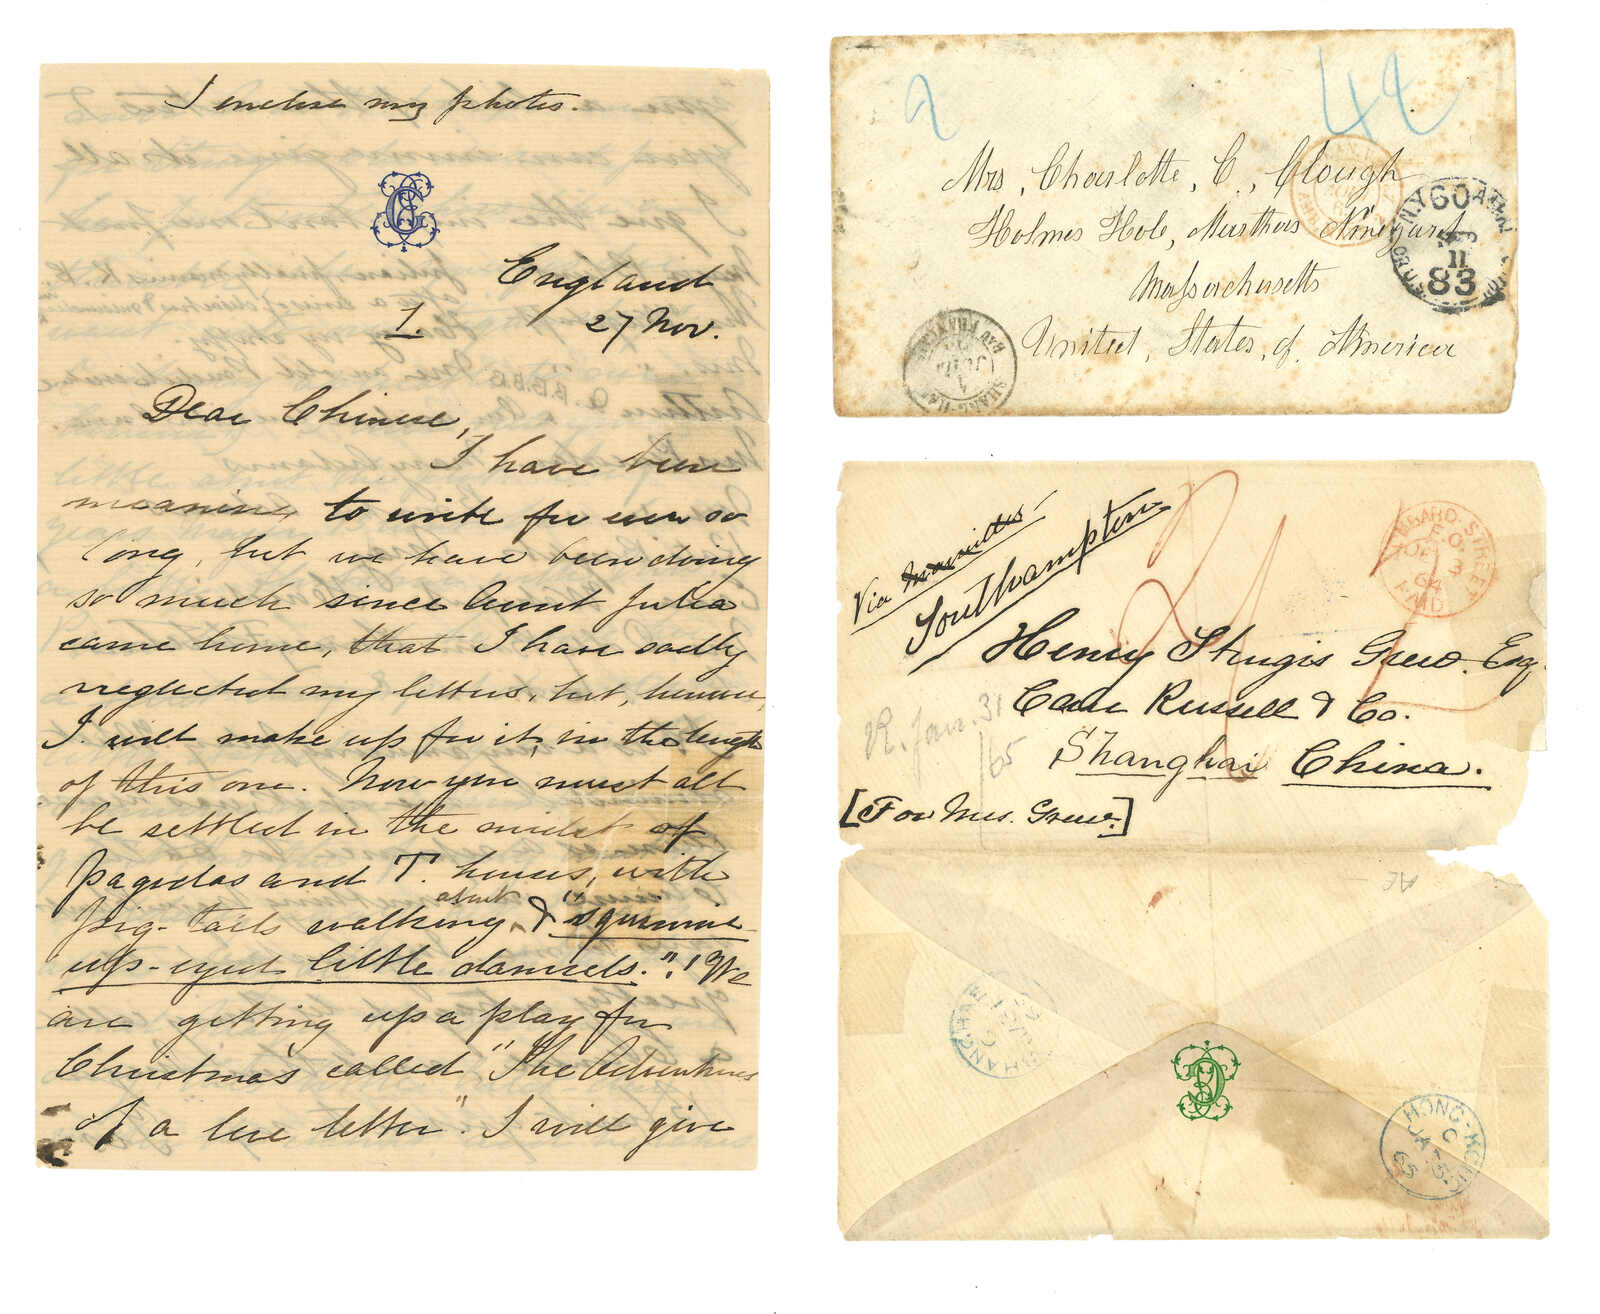 I enclose my photos.
England
1.
27 Nov.
Dear Chinese,
I have been
meaning to write for ever so
long, but we have been doing
so much since Aunt Julia
came home, that I have sadly
neglected my letters, but, however,
I will make up for it, in the length
of this one. Now you must all
be settled in the midst of
pagodas and T. houses, with
pig-tails walking about, & "squinnie
up-eyed little damsels."! We
are getting up a play for
Christmas called "The Adventures
of a love letter". I will give
2
42
Mrs, Charlotte, C., Clough
Holmes Hole, Marthers
Massachusetts
United, States, of, America
N.Y.
60
11
83
SHANG-HAI
Via Marseilles
Southampton
Henry Sturgis Grew. Esq.
Care Russell & Co.
Shanghai China.
[For Mrs. Grew.]
R. Jan. 31
/65
LOMBARD-STREET
F.O.
DE 3
64
PAID
SHANGHAI
C
HONG-KONG
C
JA 15
65